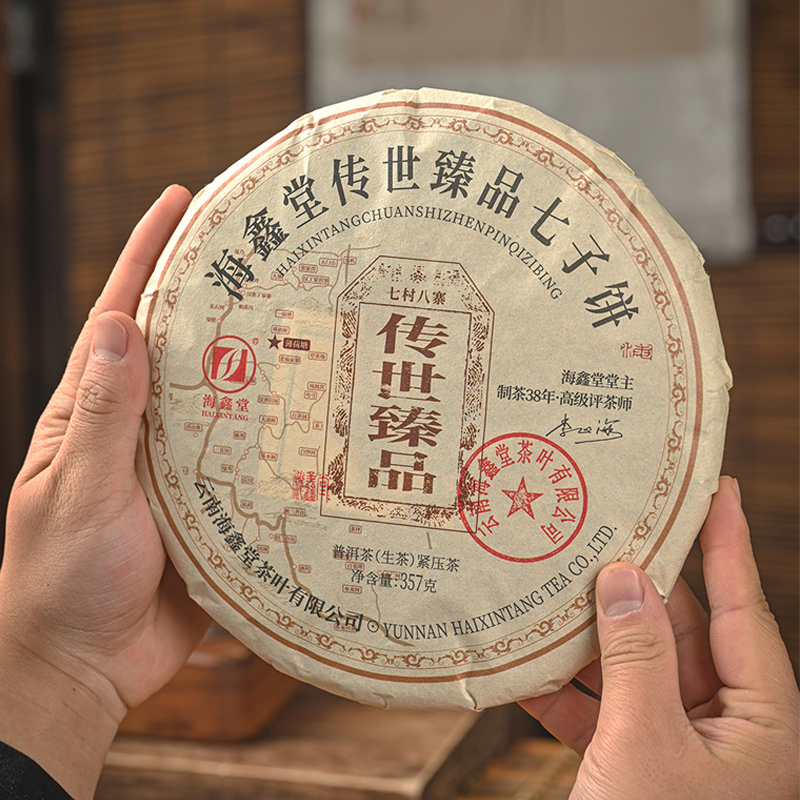 海鑫堂传世臻品七子饼
HAIXINTANGCHUANSHIZHENPINQIZIBING
七村八寨
传世臻品
薄荷塘
海鑫堂
HAIXINTANG
®
海鑫堂堂主
制茶38年·高级评茶师
云南海鑫堂茶叶有限公司
普洱茶(生茶)紧压茶
净含量:357克
云南海鑫堂茶叶有限公司 ⊙ YUNNAN HAIXINTANG TEA CO.,LTD.